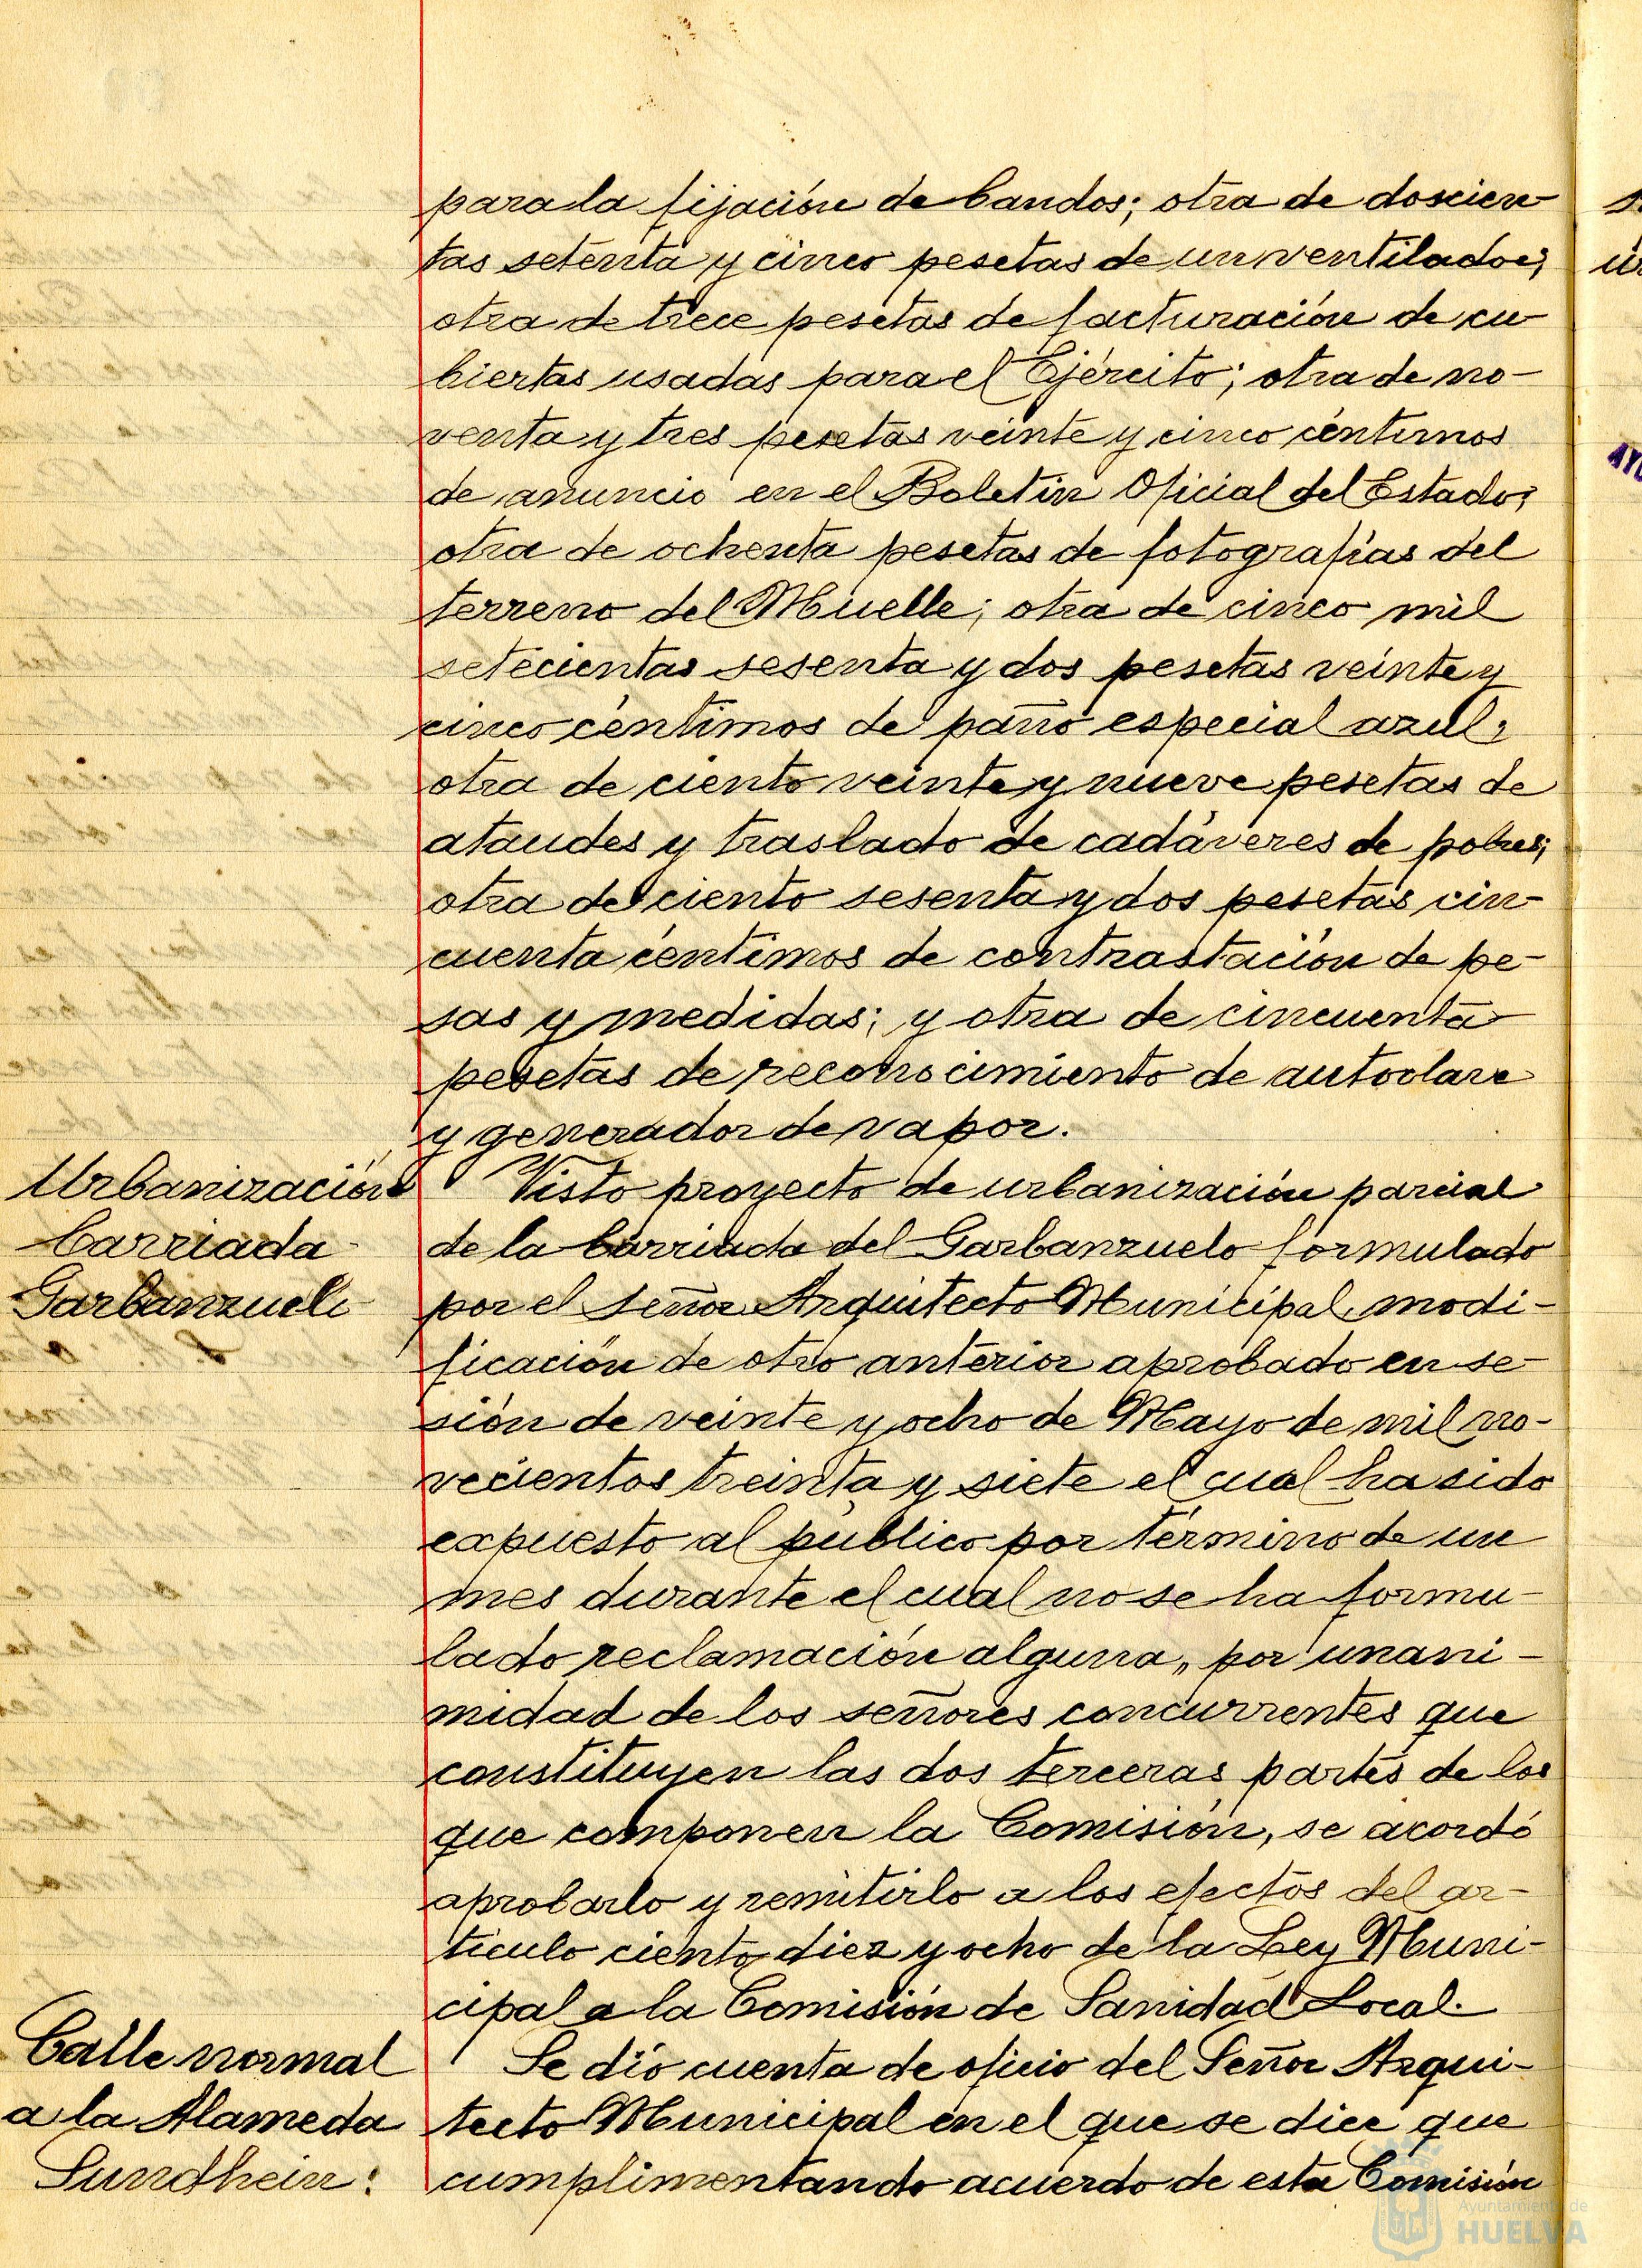 para la fijación de bandos; otra de doscien-
tas setenta y cinco pesetas de un ventilador;
otra de trece pesetas de facturación de cu-
biertas usadas para el Ejército; otra de no-
venta y tres pesetas veinte y cinco céntimos
de anuncio en el Boletín Oficial del Estado;
otra de ochenta pesetas de fotografías del
terreno del Muelle; otra de cinco mil
setecientas sesenta y dos pesetas veinte y
cinco céntimos de paño especial azul;
otra de ciento veinte y nueve pesetas de
ataudes y traslado de cadáveres de pobres;
otra de ciento sesenta y dos pesetas cin-
cuenta céntimos de contrastación de pe-
sas y medidas; y otra de cincuenta
pesetas de reconocimiento de autoclave
y generador de vapor.
Urbanización
barriada
Garbanzuelo
Visto proyecto de urbanización parcial
de la barriada del Garbanzuelo formulado
por el señor Arquitecto Municipal, modi-
ficación de otro anterior aprobado en se-
sión de veinte y ocho de Mayo de mil no-
vecientos treinta y siete el cual ha sido
expuesto al público por término de un
mes durante el cual no se ha formu-
lado reclamación alguna, por unani-
midad de los señores concurrentes que
constituyen las dos terceras partes de los
que componen la Comisión, se acordó
aprobarlo y remitirlo a los efectos del ar-
tículo ciento diez y ocho de la Ley Muni-
cipal a la Comisión de Sanidad Local.
Calle normal
a la Alameda
Sundhein:
Se dió cuenta de oficio del Señor Arqui-
tecto Municipal en el que se dice que
cumplimentando acuerdo de esta Comisión
Ayuntamiento de
HUELVA